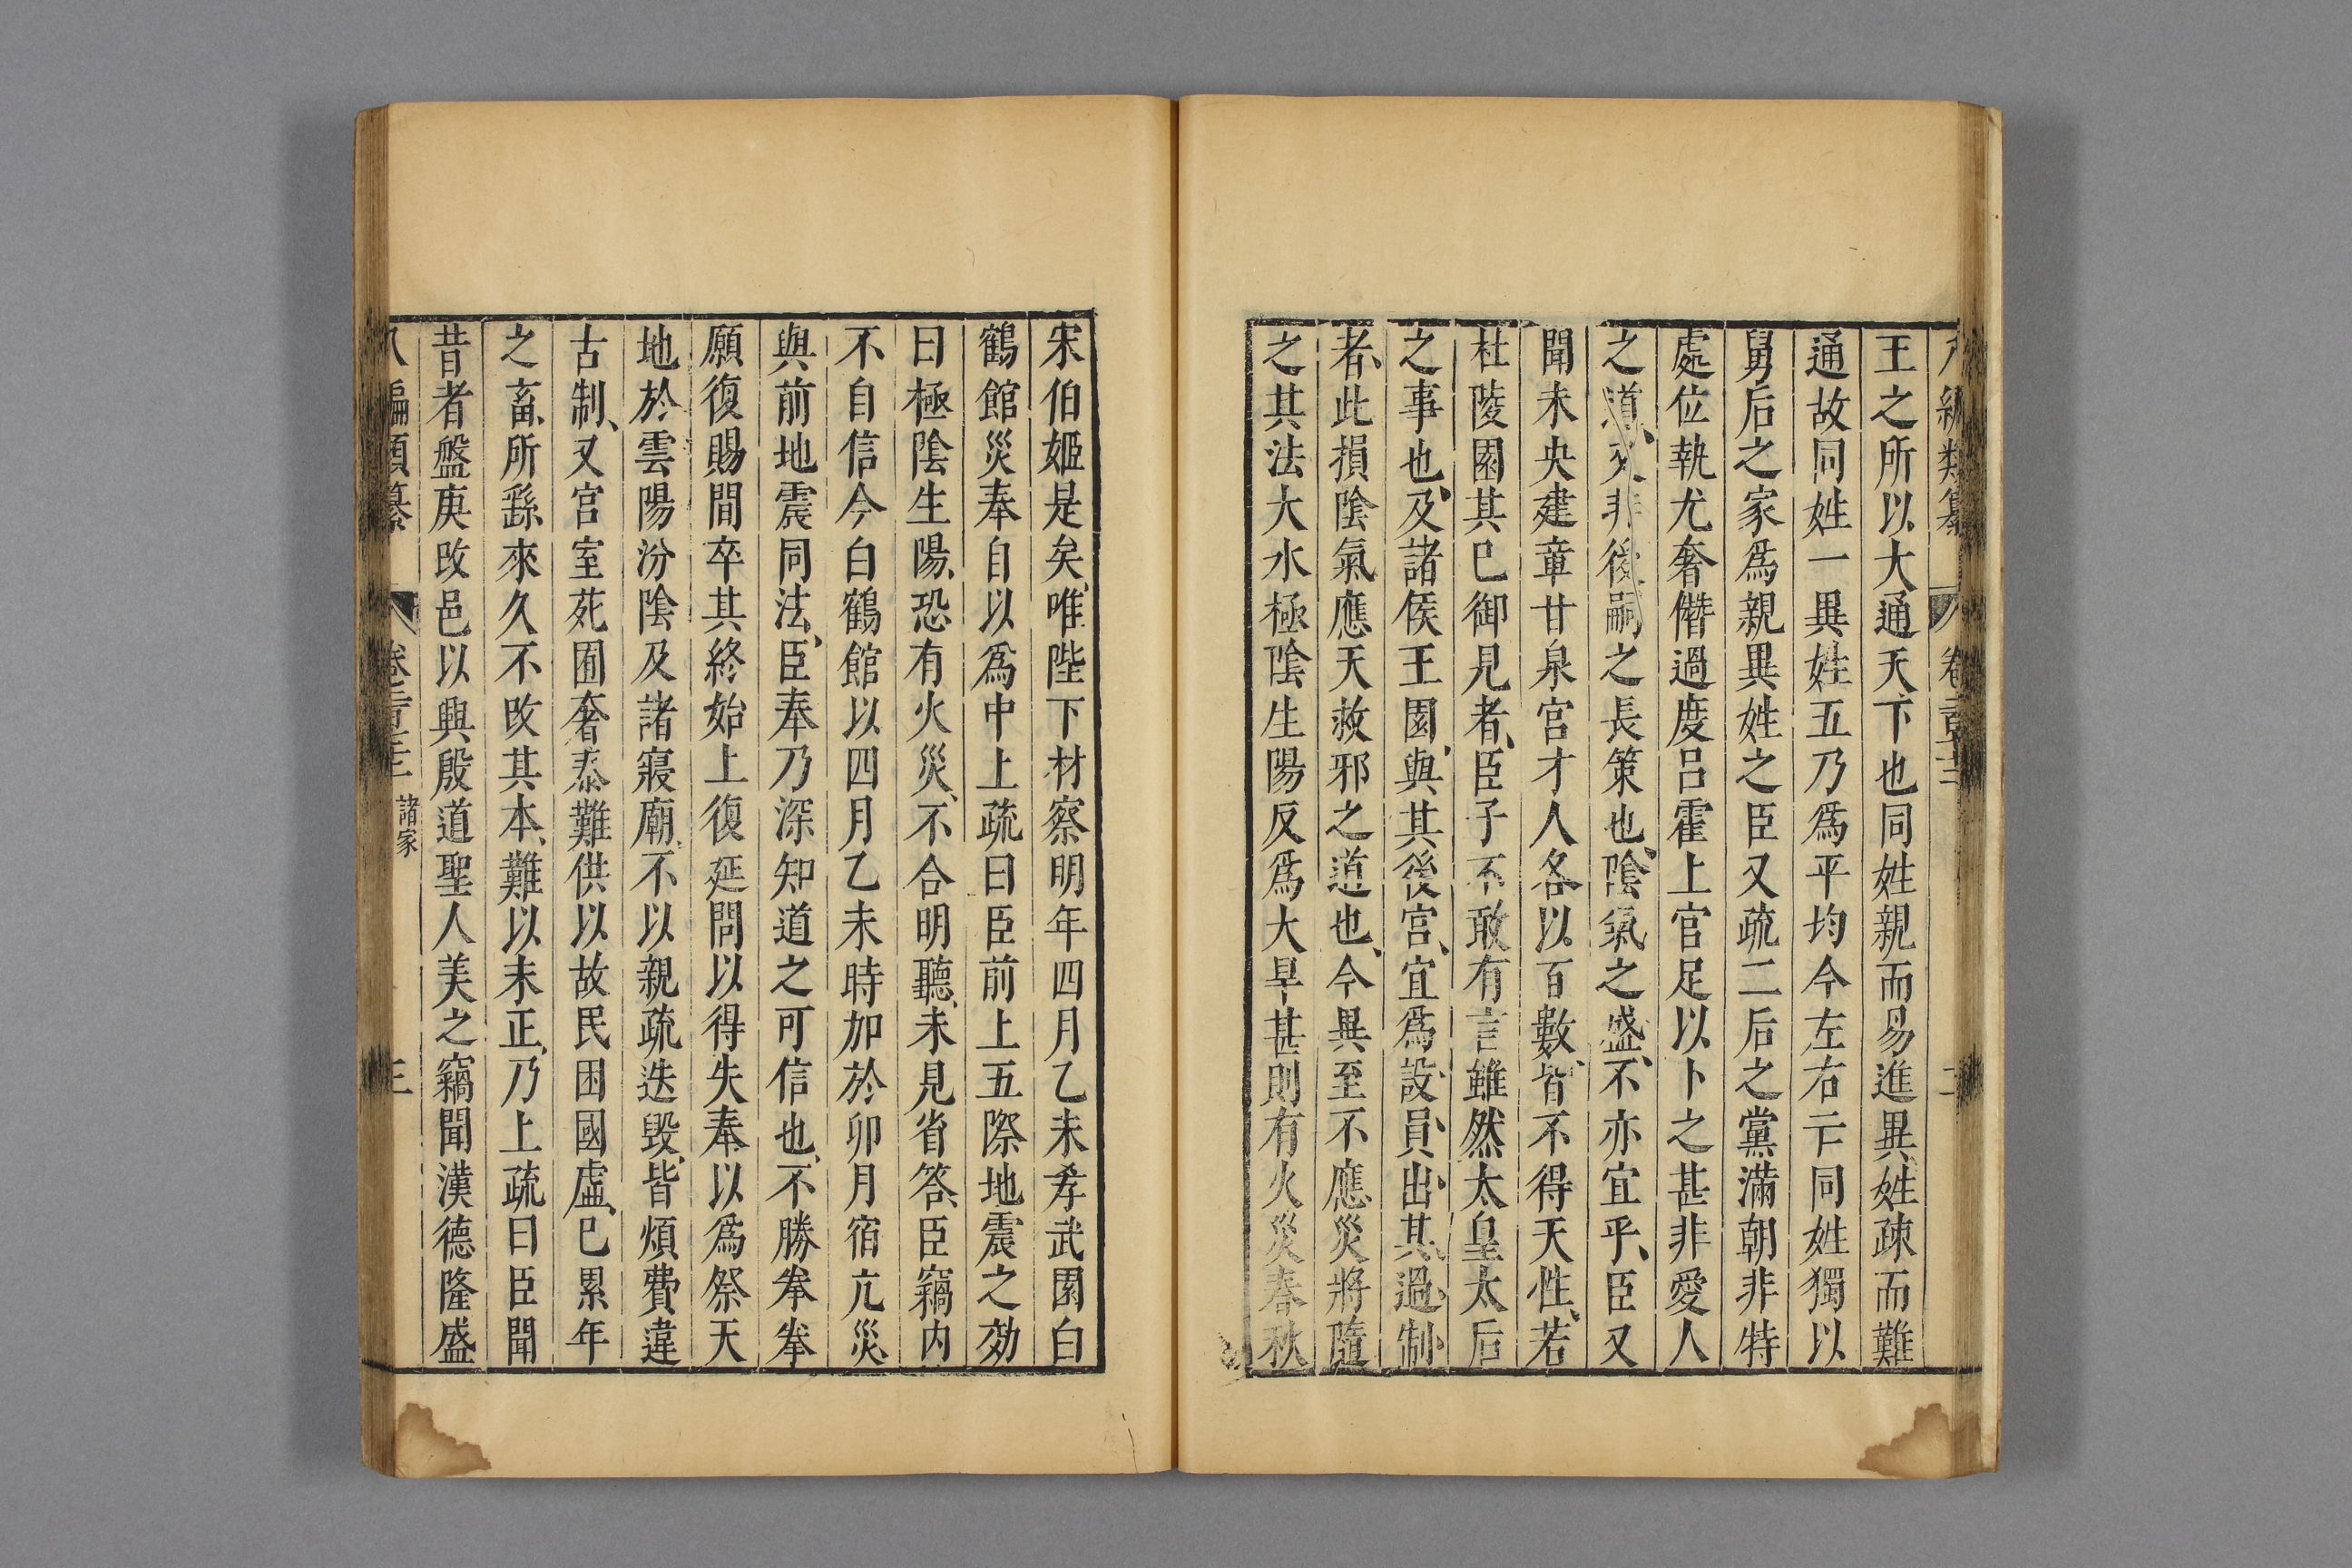 八編類纂 卷
王之所以大通天下也同姓親而易進異姓疎而難
通故同姓一異姓五乃爲平均今左右亡同姓獨以
舅后之家爲親異姓之臣又疏二后之黨滿朝非特
處位執尤奢僭過度呂霍上官足以卜之甚非愛人
之道又非後嗣之長策也陰氣之盛不亦宜乎臣又
聞未央建章甘泉宮才人各以百數皆不得天性若
杜陵園其已御見者臣子不敢有言雖然太皇太后
之事也及諸侯王園與其後宮宜爲設員出其過制
者此損陰氣應天救邪之道也今異至不應災將隨
之其法大水極陰生陽反爲大旱甚則有火災春秋
宋伯姬是矣唯陛下材察明年四月乙未孝武園白
鶴館災奉自以爲中上疏曰臣前上五際地震之効
曰極陰生陽恐有火災不合明聽未見省答臣竊内
不自信今白鶴館以四月乙未時加於卯月宿亢災
與前地震同法臣奉乃深知道之可信也不勝拳拳
願復賜間卒其終始上復延問以得失奉以爲祭天
地於雲陽汾陰及諸寢廟不以親疏迭毀皆煩費違
古制又宮室苑囿奢泰難供以故民困國虛已累年
之畜所繇來久不改其本難以末正乃上疏曰臣聞
昔者盤庚改邑以興殷道聖人美之竊聞漢德隆盛
八編類纂 卷 諸家 三